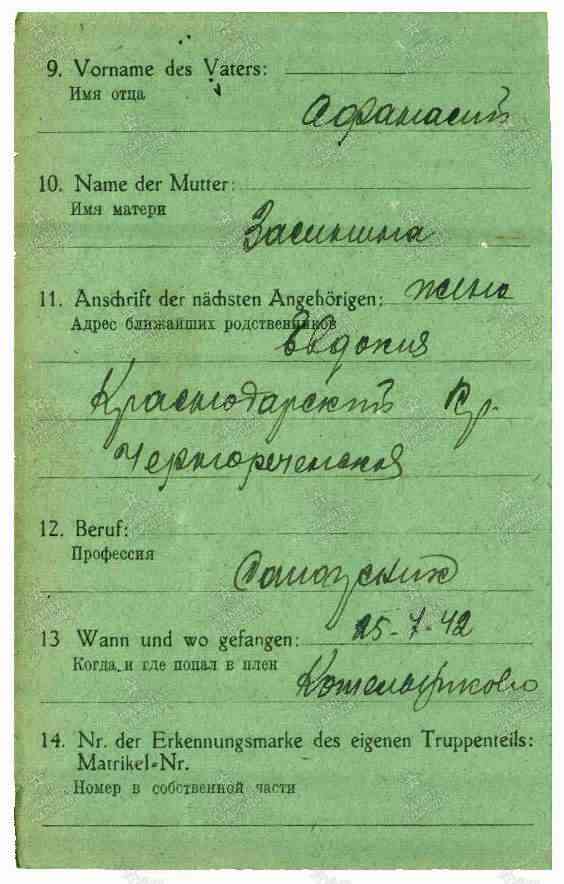 9. Vorname des Vaters:
Имя отца
Афанасий
10. Name der Mutter:
Имя матери
11. Anschrift der nächsten Angehörigen: жена
Адрес ближайших родственников
Евдокия
Краснодарский кр.
12. Beruf:
Профессия
13 Wann und wo gefangen: 25-7-42
Когда и где попал в плен
Котельниково
14. Nr. der Erkennungsmarke des eigenen Truppenteils:
Matrikel-Nr.
Номер в собственной части